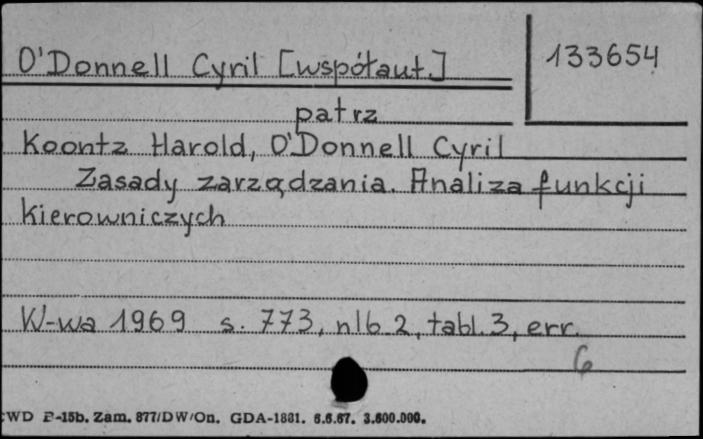 O'Donnell Cyril [współaut.]
133654
patrz
Koontz Harold, O'Donnell Cyril
Zasady zarządzania. Analiza funkcji
kierowniczych
W-wa 1969 s. 773, nlb 2, tabl. 3, err.
6
CWD P-15b. Zam. 877/DW/On. GDA-1881. 6.6.67. 3.600.000.